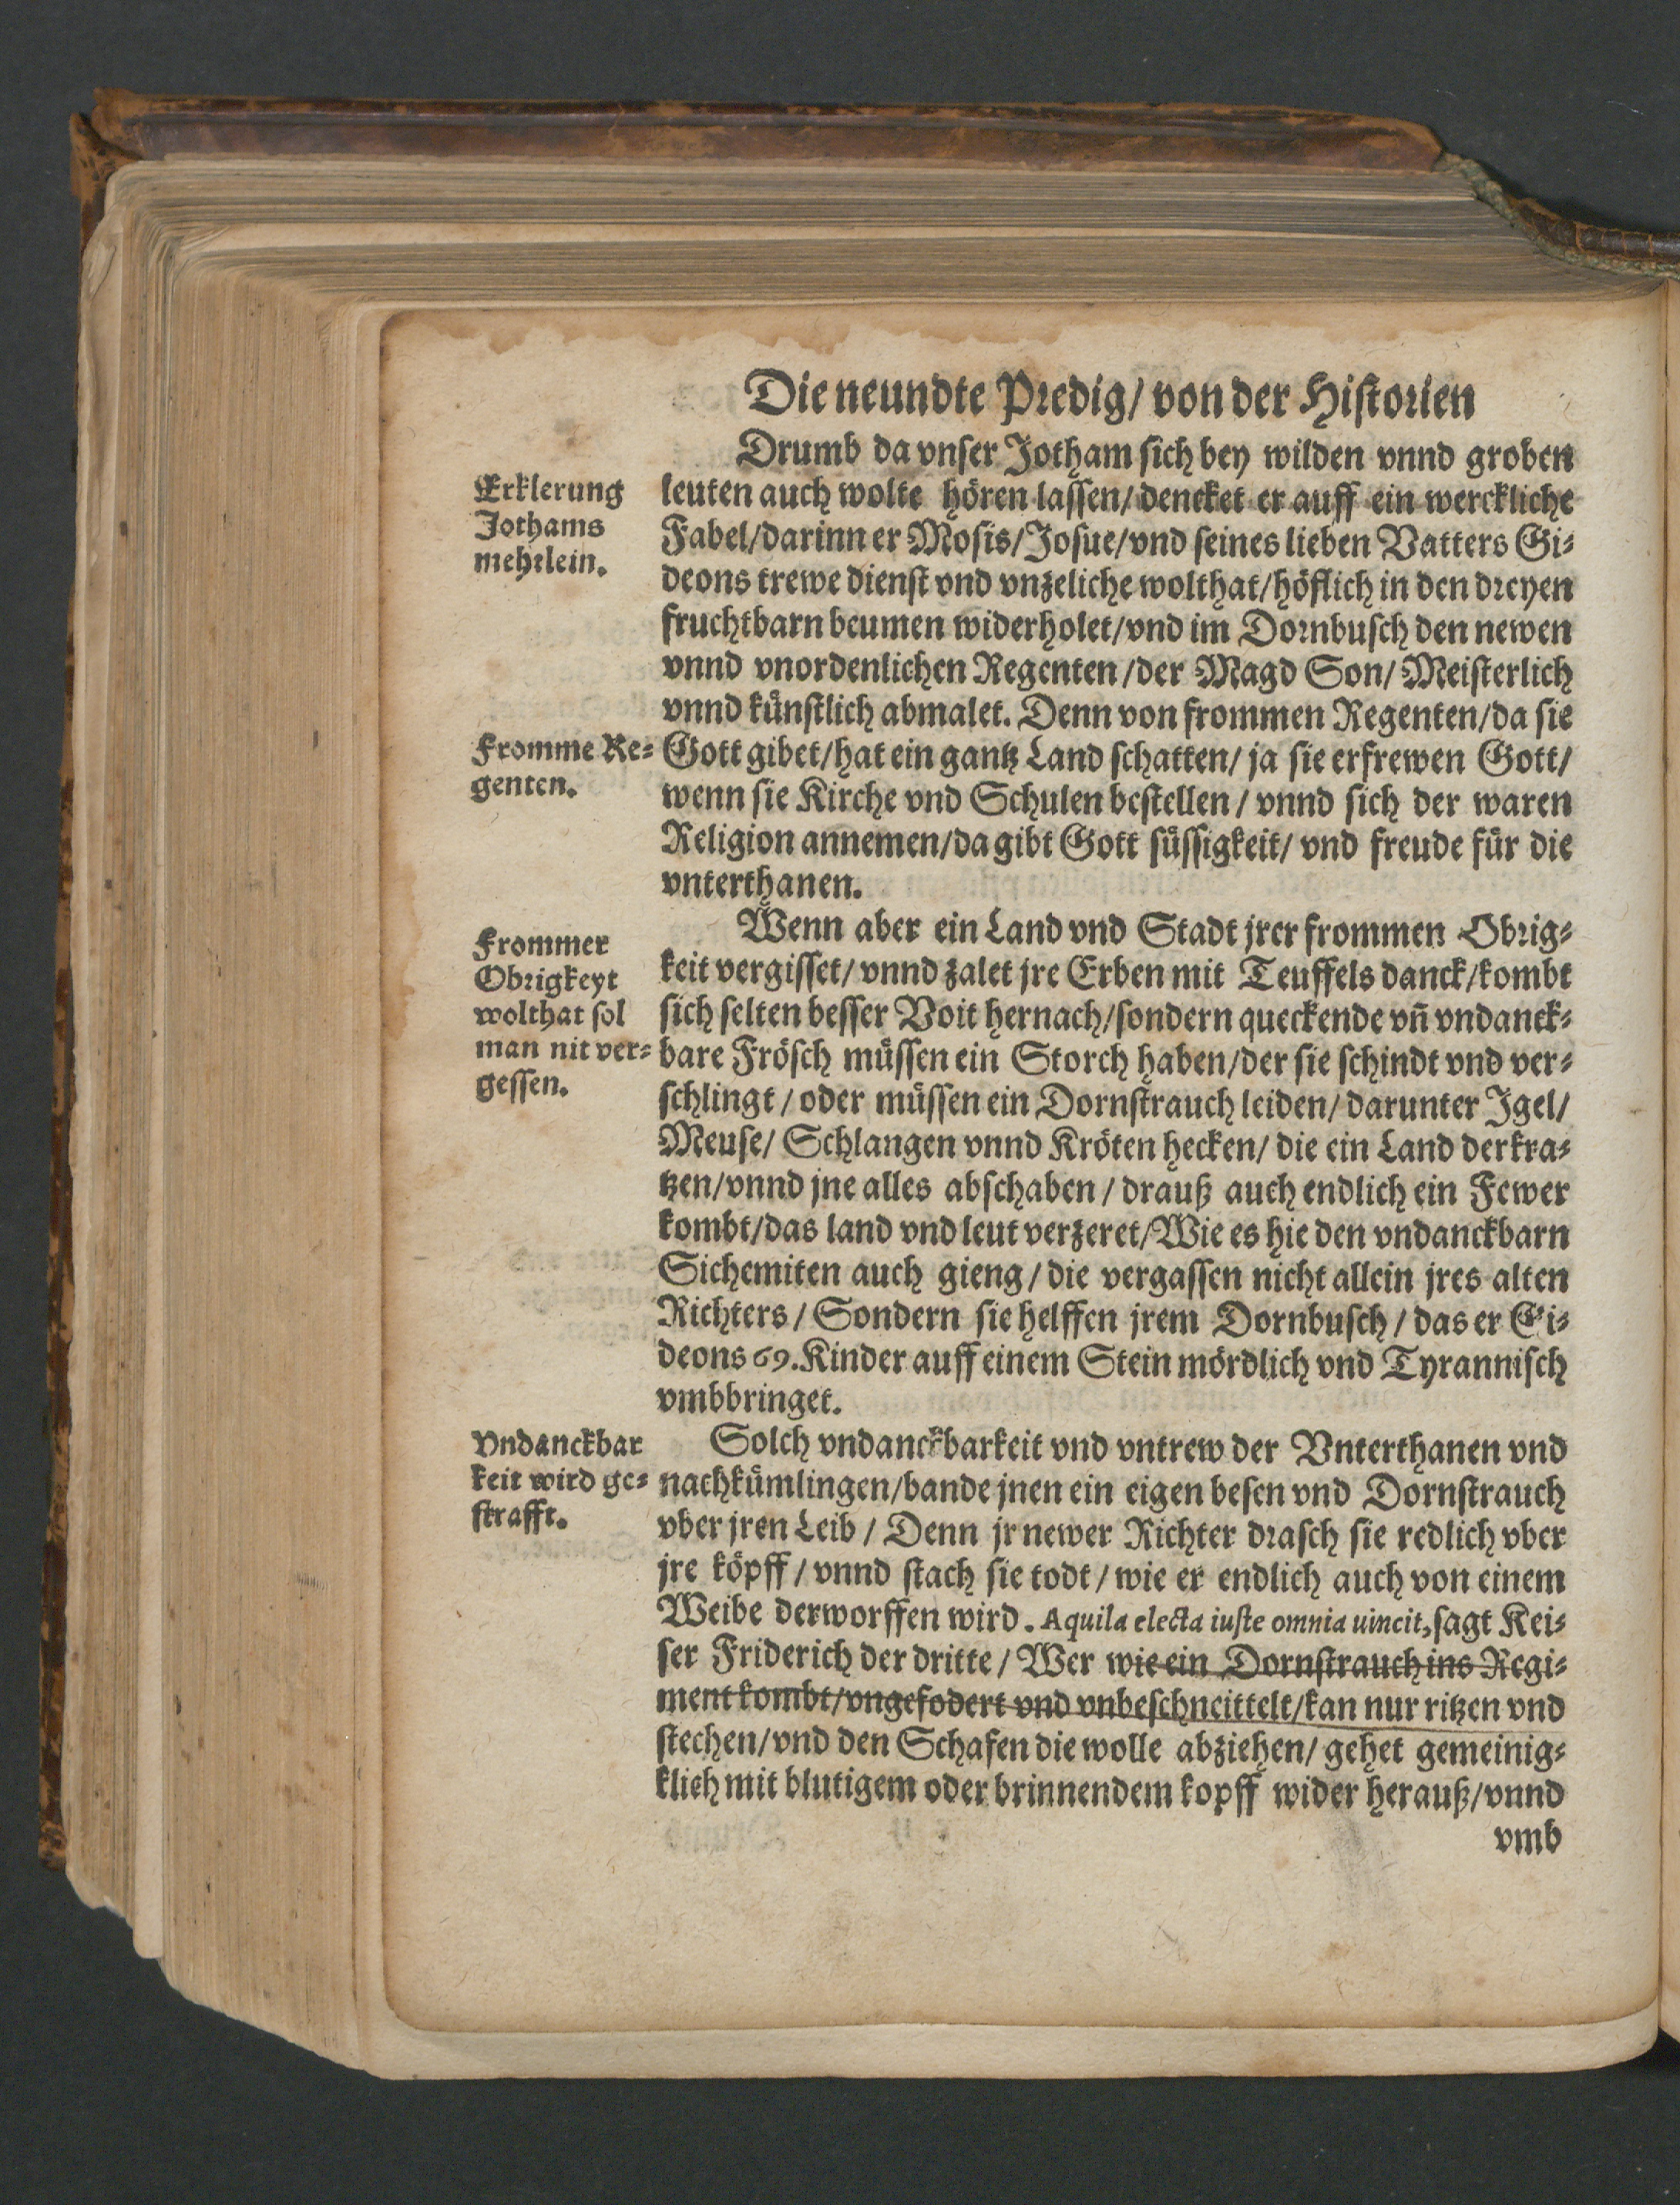 Die neundte Predig/ von der Historien
Drumb da vnser Jotham sich bey wilden vnnd groben
Erklerung
Jothams
mehrlein.
leuten auch wolte hören lassen/ dencket er auff ein werckliche
Fabel/darinn er Mosis/Josue/vnd seines lieben Vatters Gi⸗
deons trewe dienst vnd vnzeliche wolthat/höflich in den dreyen
fruchtbarn beumen widerholet/vnd im Dornbusch den newen
vnnd vnordenlichen Regenten /der Magd Son/ Meisterlich
vnnd künstlich abmalet. Denn von frommen Regenten/da sie
Fromme Re⸗
genten.
Gott gibet/hat ein gantz Land schatten/ ja sie erfrewen Gott/
wenn sie Kirche vnd Schulen bestellen / vnnd sich der waren
Religion annemen/da gibt Gott süssigkeit/ vnd freude für die
vnterthanen.
Wenn aber ein Land vnd Stadt jrer frommen Obrig⸗
Frommer
Obrigkeyt
wolthat sol
man nit ver⸗
gessen.
keit vergisset/ vnnd zalet jre Erben mit Teuffels danck/kombt
sich selten besser Voit hernach/sondern queckende vñ vndanck⸗
bare Frösch müssen ein Storch haben/der sie schindt vnd ver⸗
schlingt / oder müssen ein Dornstrauch leiden/ darunter Igel/
Meuse/ Schlangen vnnd Kröten hecken/ die ein Land derkra⸗
tzen/vnnd jne alles abschaben / drauß auch endlich ein Fewer
kombt/das land vnd leut verzeret/Wie es hie den vndanckbarn
Sichemiten auch gieng / die vergassen nicht allein jres alten
Richters / Sondern sie helffen jrem Dornbusch / das er Gi⸗
deons 69. Kinder auff einem Stein mördlich vnd Tyrannisch
vmbbringet.
Vndanckbar
keit wird ge⸗
strafft.
Solch vndanckbarkeit vnd vntrew der Vnterthanen vnd
nachkümlingen/bande jnen ein eigen besen vnd Dornstrauch
vber jren Leib / Denn jr newer Richter drasch sie redlich vber
jre köpff / vnnd stach sie todt / wie er endlich auch von einem
Weibe derworffen wird. Aquila electa iuste omnia uincit, sagt Kei⸗
ser Friderich der dritte / Wer wie ein Dornstrauch ins Regi⸗
ment kombt/vngefodert vnd vnbeschneittelt/kan nur ritzen vnd
stechen/vnd den Schafen die wolle abziehen/ gehet gemeinig⸗
klich mit blutigem oder brinnendem kopff wider herauß/vnnd
vmb